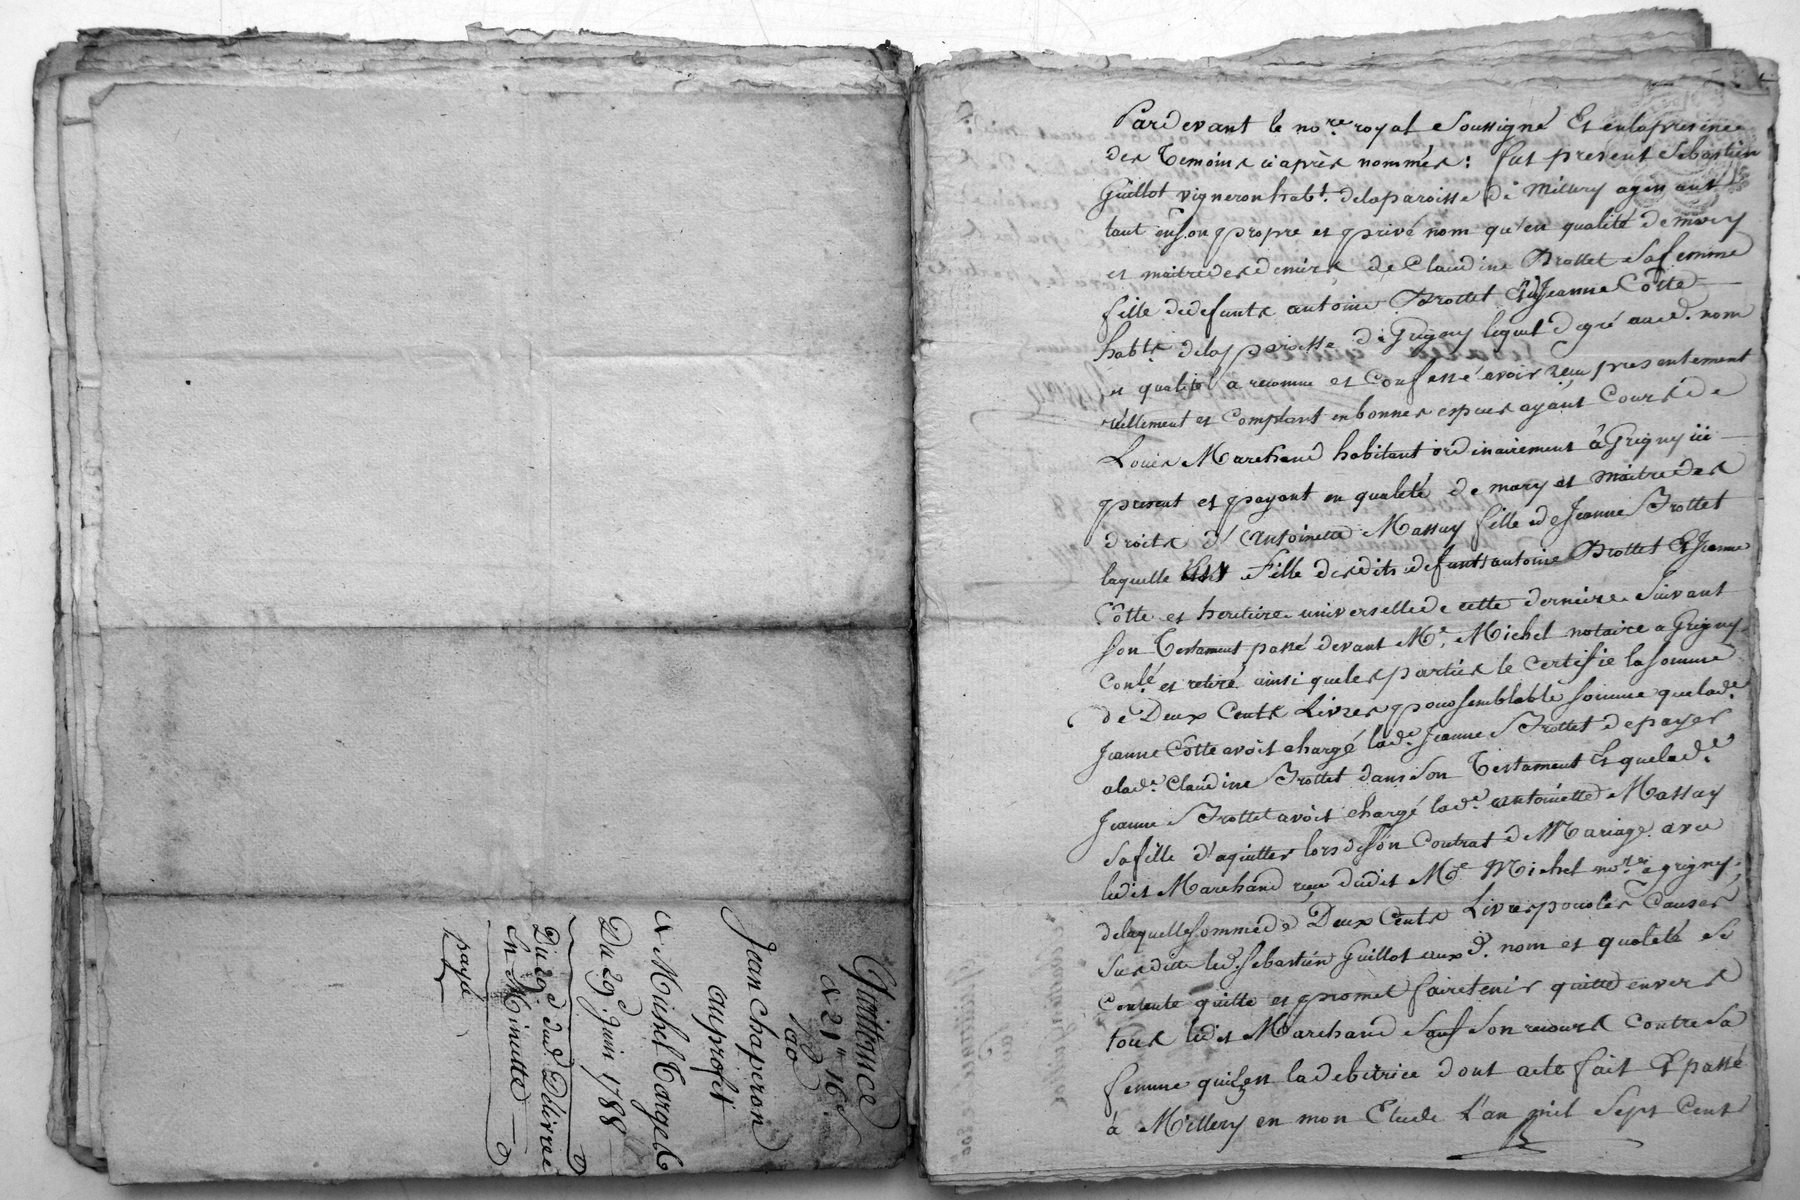 Quittence
de 21ᵗᵗ 16ˢ
Jean Chaperon
auprofit
de Michel Targe
Du 29ᵈ. Juin 1788
Du 29ᵈ dud. Délivrée
En Minutte
payé
Pardevant le noʳᵉ royal Soussigné Et enlapresence
des Temoins ciaprès nommés : fut present Sebastien
Guillot vigneron habᵗ. delaparoisse de Millery agissant
tant enson propre et privé nom qu'en qualité de mary
et maitre des deniers de Claudine Brottet Safemme
fille dedefunts antoine Brottet Et Jeanne Côtte
habᵗˢ delapparoisse de Grigny lequel degré aud. nom
et qualité a reconnu et Confessé avoir reçu presentement
réellement et Comptant enbonnes especes ayant Cours de
Louis Marchand habitant ordinairement à Grigny ici
present et payant en qualité de mary et maitre des
droits d'Antoinette Massay fille de Jeanne Brottet
laquelle Est fille desdits defunts antoine Brottet Et Jeanne
Côtte et heritiere universelle de cette derniere Suivant
Son Testament passé devant Mᵉ. Michel notaire a Grigny
Conlé et retiré ainsi queles parties le certifie la Somme
de Deux Cents Livres pour Semblable Somme quelade.
Jeanne Côtte avoit chargé ladᵉ. Jeanne Brottet depayer
aladᵉ. Claudine Brottet dans Son Testament Et queladᵉ.
Jeanne Brottet avoit chargé ladᵉ. antoinette Massay
Safille d'aquitter lors deSon Contrat de Mariage avec
ledit Marchand reçu dudit Mᵉ Michel noʳᵉ a grigny,
delaquelle Somme de Deux Cents Livres pour les Causes
Susditte led. Sebastien Guillot auxd. nom et qualité Se
Contente quitte et promet faire tenir quitte envers
tous ledit Marchand Sauf Son recours Contre Sa
femme qui En la debitrice dont acte fait Et passé
à Millery en mon Etude L'an mil Sept Cent